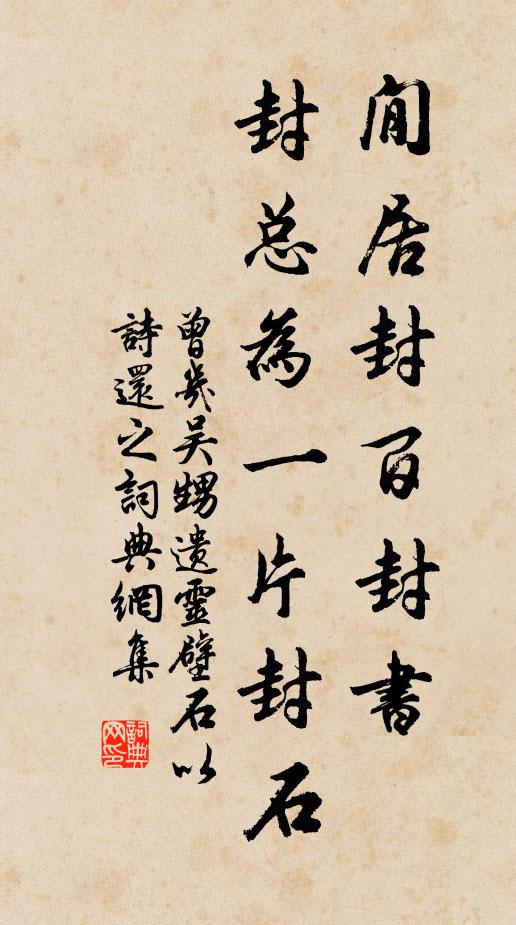 閒居封百封書
封总為一片封石
曾幾吴甥遺靈壁石以
詩還之詞典網集
詞典
网印